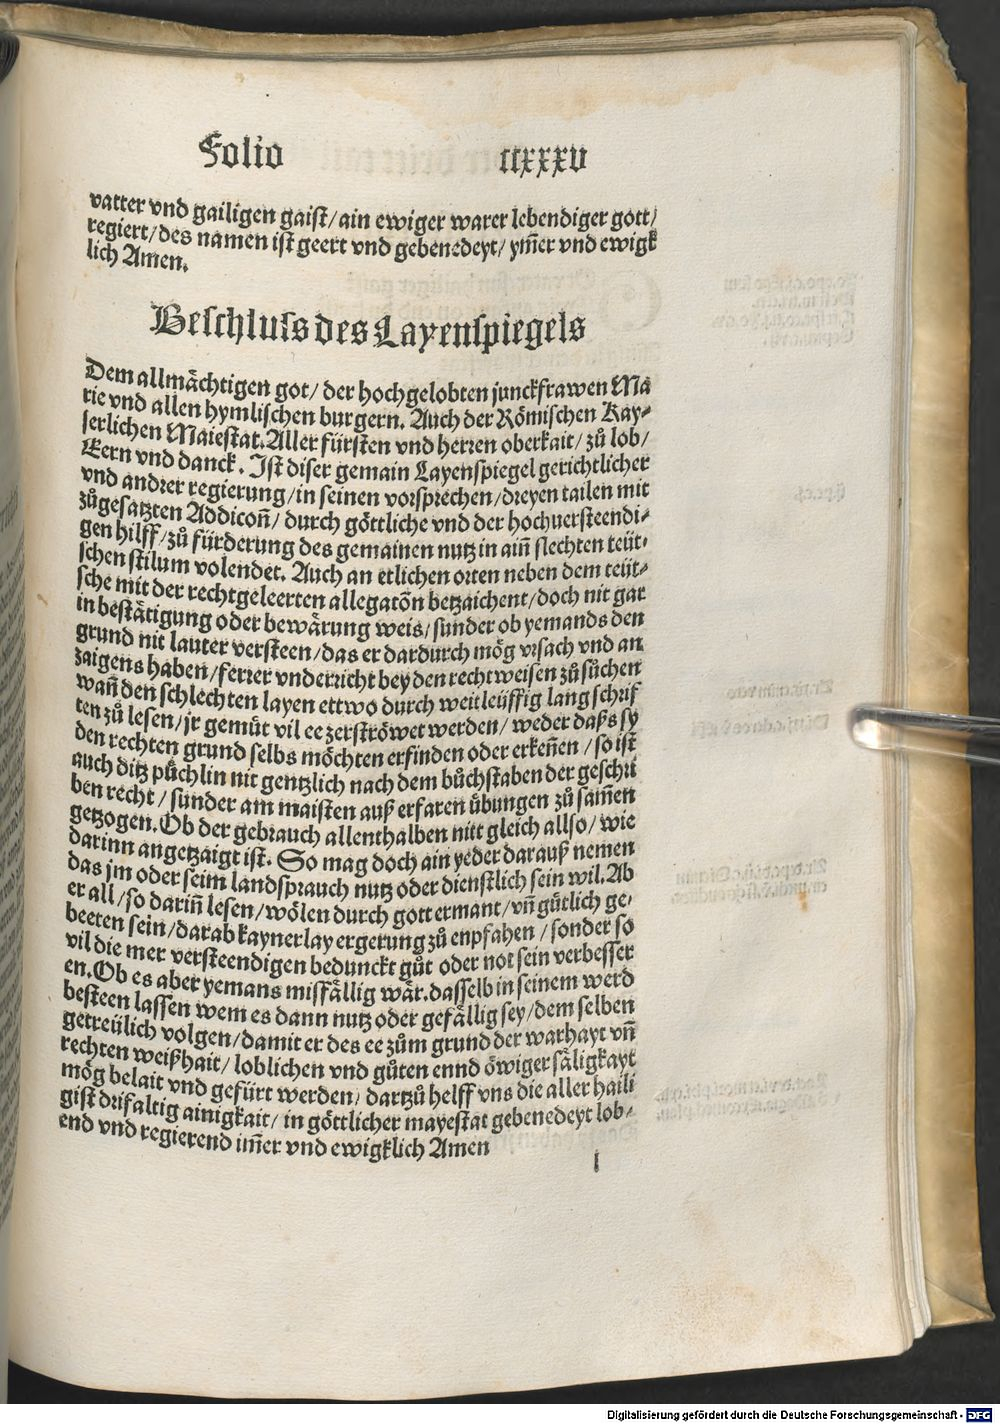 Folio ccxxxv
vatter vnd gailigen gaist/ ain ewiger warer lebendiger gott/
regiert/ des namen ist geert vnd gebenedeyt/ ym̃er vnd ewigk
lich Amen.
Beschluss des Layenspiegels
Dem allmächtigen got/ der hochgelobten junckfrawen Ma
rie vnd allen hymlischen burgern. Auch der Römischen Kay⸗
serlichen Maiestat. Aller fürsten vnd herren oberkait/ zů lob/
Eern vnd danck. Ist diser gemain Layenspiegel gerichtlicher
vnd andrer regierung/ in seinen vorsprechen/ dreyen tailen mit
zůgesatzten Addicoñ/ durch göttliche vnd der hochuersteendi⸗
gen hilff/ zů fürderung des gemainen nutz in aiñ slechten teüt⸗
schen stilum volendet. Auch an etlichen orten neben dem teüt⸗
sche mit der rechtgeleerten allegatõn betzaichent/ doch nit gar
in bestätigung oder bewärung weis/ sunder ob yemands den
grund nit lauter versteen/ das er dardurch mög vrsach vnd an
zaigens haben/ ferrer vnderricht bey den recht weisen zů sůchen
wañ den schlechten layen ettwo durch weitleüffig lang schrif
ten zů lesen/ jr gemüt vil ee zerströwet werden/ weder daſs sy
den rechten grund selbs möchten erfinden oder erkeñen/ so ist
auch ditz půchlin nit gentzlich nach dem bůchstaben der geschri
ben recht/ sunder am maisten auß erfaren übungen zů sam̃en
getzogen. Ob der gebrauch allenthalben nitt gleich allso/ wie
darinn angetzaigt ist. So mag doch ain yeder darauß nemen
das jm oder seim landsprauch nutz oder dienstlich sein wil. Ab
er all/ so dariñ lesen/ wölen durch gott ermant/ vñ gůtlich ge⸗
beeten sein/ darab kayner lay ergerung zů enpfahen/ sonder so
vil die mer versteendigen bedunckt gůt oder not sein verbesser
en. Ob es aber yemans missfällig wär. dasselb in seinem werd
besteen lassen wem es dann nutz oder gefällig sey/ dem selben
getreülich volgen/ damit er des ee zům grund der warhayt vñ
rechten weißhait/ loblichen vnd gůten ennd öwiger säligkayt
mög belait vnd gefürt werden/ dartzů helff vns die aller haili
gist drifaltig ainigkait/ in göttlicher mayestat gebenedeyt lob⸗
end vnd regierend im̃er vnd ewigklich Amen
l
Digitalisierung gefördert durch die Deutsche Forschungsgemeinschaft - DFG